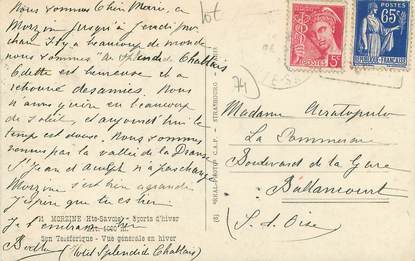 Nous sommes Chère Marie, à
Morzine jusqu'à jeudi pro
chain. Il y a beaucoup de monde
nous sommes au Splendid Chablais
Odette est heureuse et a
retrouvé des amies. Nous
n'avons guère eu beaucoup
de soleil, et aujourd'hui le
temps est doux. Nous sommes
venus par la vallée de la Dranse
St Jean d'Aulph n'a pas changé
Morzine s'est bien agrandi
J'espère que tu es bien
Je t'embrasse
(Hôtel Splendid Chablais)
MORZINE (Hte-Savoie) - Sports d'hiver
Alt. 1000 m.
Son Téléférique - Vue générale en hiver
"REAL-PHOTO" C.A.P. - STRASBOURG
(8)
lot
74
POSTES
5c
65c
REPUBLIQUE FRANÇAISE
Madame
La
Boulevard de la Gare
Ballancourt
S. et Oise